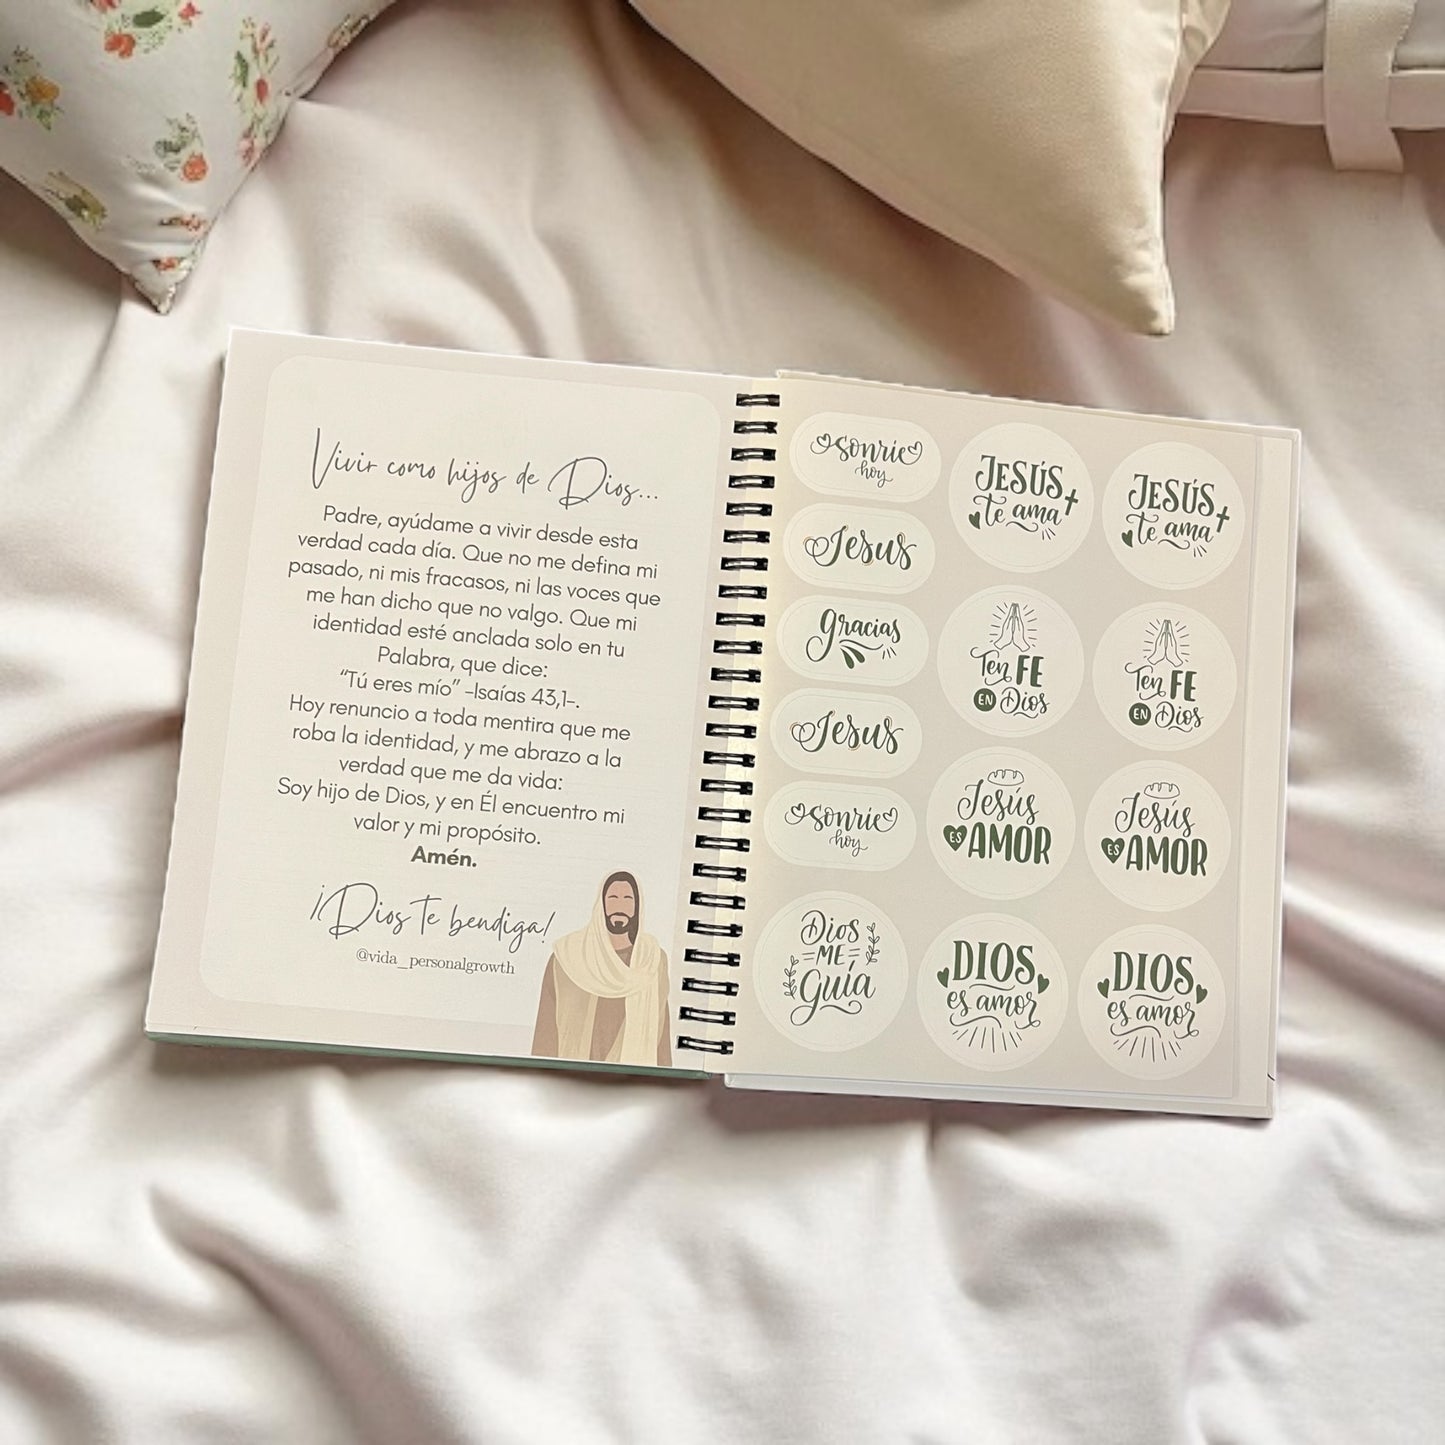 Vivir como hijos de Dios...
Padre, ayúdame a vivir desde esta
verdad cada día. Que no me defina mi
pasado, ni mis fracasos, ni las voces que
me han dicho que no valgo. Que mi
identidad esté anclada solo en tu
Palabra, que dice:
“Tú eres mío” -Isaías 43,1-.
Hoy renuncio a toda mentira que me
roba la identidad, y me abrazo a la
verdad que me da vida:
Soy hijo de Dios, y en Él encuentro mi
valor y mi propósito.
Amén.
¡Dios te bendiga!
@vida_personalgrowth
sonríe
hoy
Jesus
gracias
Jesus
sonríe
hoy
Dios
ME
Guía
JESÚS
te ama
Ten FE
EN Dios
Jesús
ES AMOR
DIOS
es amor
JESÚS
te ama
Ten FE
EN Dios
Jesús
ES AMOR
DIOS
es amor